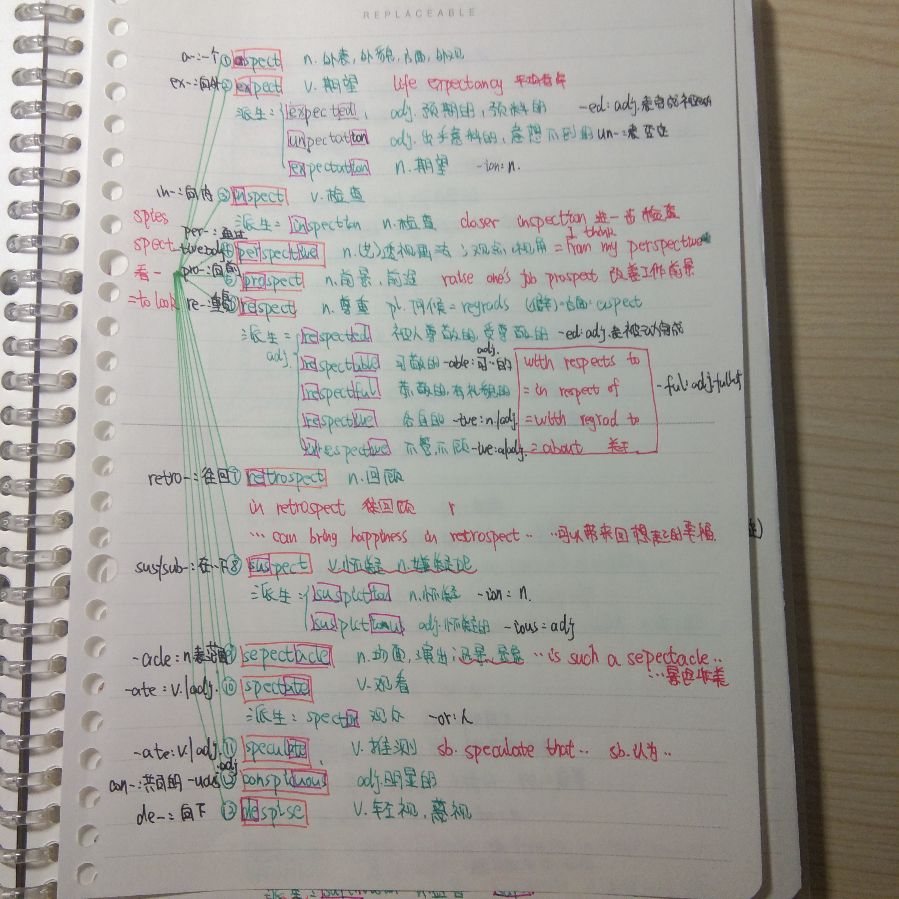 REPLACEABLE
a-:一个 ① aspect n. 外表,外貌,方面,外观
ex-:向外 ② expect v. 期望 life expectancy 平均寿命
派生: expected, adj. 预期的,预料的 -ed: adj.
unpectation adj. 出乎意料的,意想不到的 un-:表否定
expectation n. 期望 -ion: n.
in-:向内 ③ inspect v. 检查
派生: inspection n. 检查 closer inspection 进一步检查
spies
spect
看-
=to look
per-: ④ perspective n. 观点,视角 = from my perspective
I think
pro-:向前 ⑤ prospect n. 前景,前途 raise one's job prospect 改善工作前景
re- ⑥ respect n. 尊重 pl. 问候 = regrads 方面 = aspect
派生: adj. respected 被人尊敬的,受尊敬的 -ed: adj. 表被动完成
respectable 可敬的 -able: 可…的 adj. with respects to
respectful 恭敬的,有礼貌的 = in respect of -ful: adj. full of
respective 各自的 -ive: n/adj. = with regrad to
irrespective 不管,不顾 -ive: = about 关于
retro-:往回 ⑦ retrospect n. 回顾
in retrospect 往回顾 r
… can bring happiness in retrospect … …可以带来回想起的幸福.
sus/sub-:在…下 ⑧ suspect v. 怀疑 n. 嫌疑犯
派生: suspition n. 怀疑 -ion: n.
adj. 怀疑的 -ious: adj
-acle: n ⑨ sepectacle n. 场面,演出 … is such a sepectacle …
-ate: v./adj. ⑩ spectate v. 观看
派生: spector 观众 -or: 人
-ate: v./adj. ⑪ speculate v. 推测 sb. speculate that … sb. 认为 …
con-:共同的 -uous adj ⑫ conspicuous adj. 明显的
de-:向下 ⑬ despise v. 轻视,蔑视